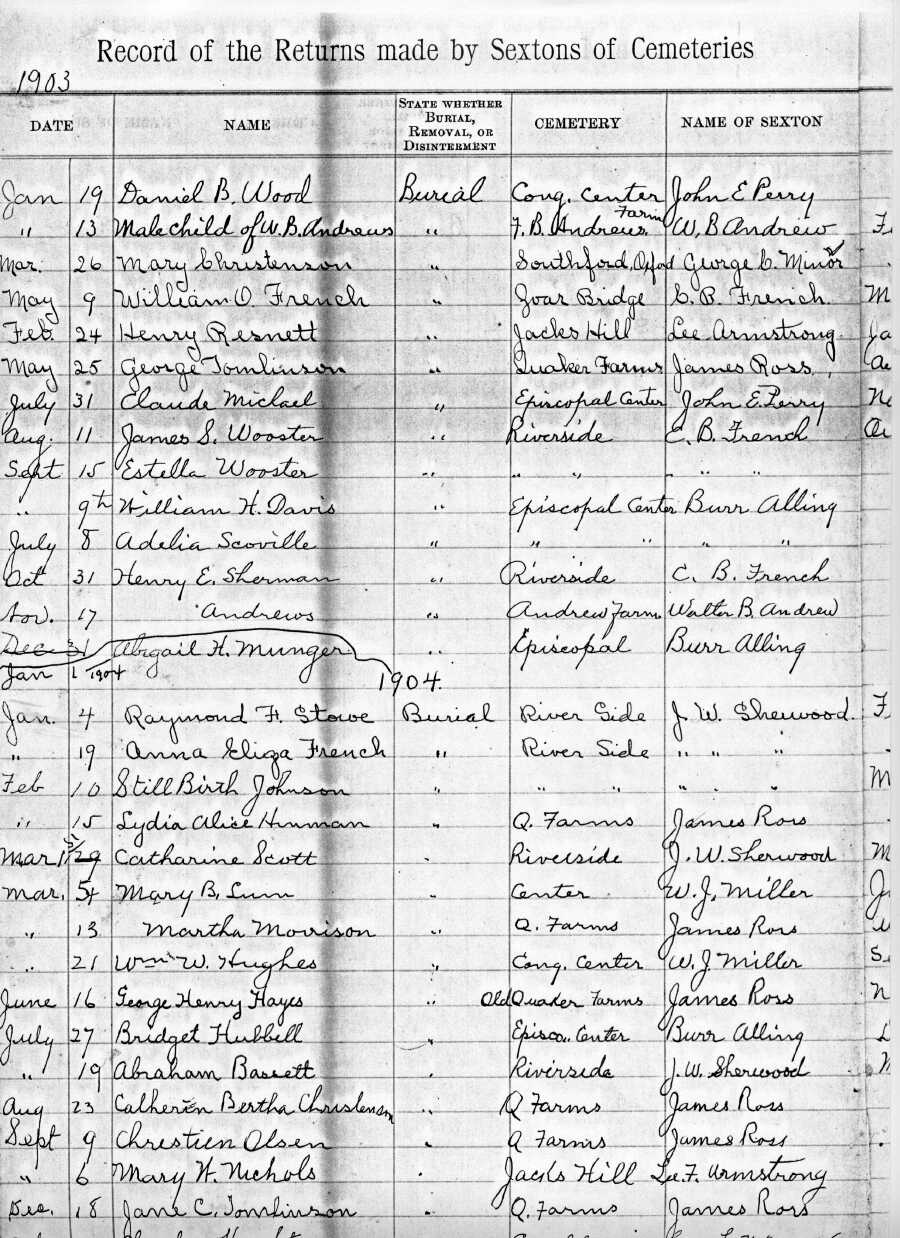 Record of the Returns made by Sextons of Cemeteries
1903
DATE NAME STATE WHETHER BURIAL, REMOVAL, OR DISINTERMENT CEMETERY NAME OF SEXTON
Jan 19 Daniel B. Wood Burial Cong. Center John E Perry
" 13 Male child of W. B. Andrews " F. B. Andrews. Farm W. B Andrew
Mar. 26 Mary Christenson " Southford, Oxford George C. Minor
May 9 William O. French " Zoar Bridge C. B. French.
Feb. 24 Henry Resnett " Jacks Hill Lee Armstrong
May 25 George Tomlinson " Quaker Farms James Ross
July 31 Claude Michael " Episcopal Center John E. Perry
Aug. 11 James S. Wooster " Riverside C. B. French
Sept 15 Estella Wooster " " " " " "
" 9th William H. Davis " Episcopal Center Burr Alling
July 8 Adelia Scoville " " " " "
Oct 31 Henry E. Sherman " Riverside C. B. French
Nov. 17 Andrews " Andrew Farm Walter B. Andrew
Dec 31 Abigail H. Munger " Episcopal Burr Alling
Jan 1 1904 1904.
Jan. 4 Raymond F. Stowe Burial River Side J. W. Sherwood.
" 19 Anna Eliza French " River Side " " "
Feb 10 Still Birth Johnson " " " " " "
" 15 Lydia Alice Hinman " Q. Farms James Ross
Mar 1st 29 Catharine Scott " Riverside J. W. Sherwood
Mar. 5 Mary B. Lum " Center W. J. Miller
" 13 Martha Morrison " Q. Farms James Ross
" 21 Wm W. Hughes " Cong. Center W. J Miller
June 16 George Henry Hayes " Old Quaker Farms James Ross
July 27 Bridget Hubbell " Episco. Center Burr Alling
" 19 Abraham Bassett " Riverside J. W. Sherwood
Aug 23 Catherin Bertha Christenson " Q Farms James Ross
Sept 9 Chrestien Olsen " Q Farms James Ross
" 6 Mary W. Nichols " Jacks Hill Lee F. Armstrong
Dec. 18 Jane C. Tomlinson " Q. Farms James Ross